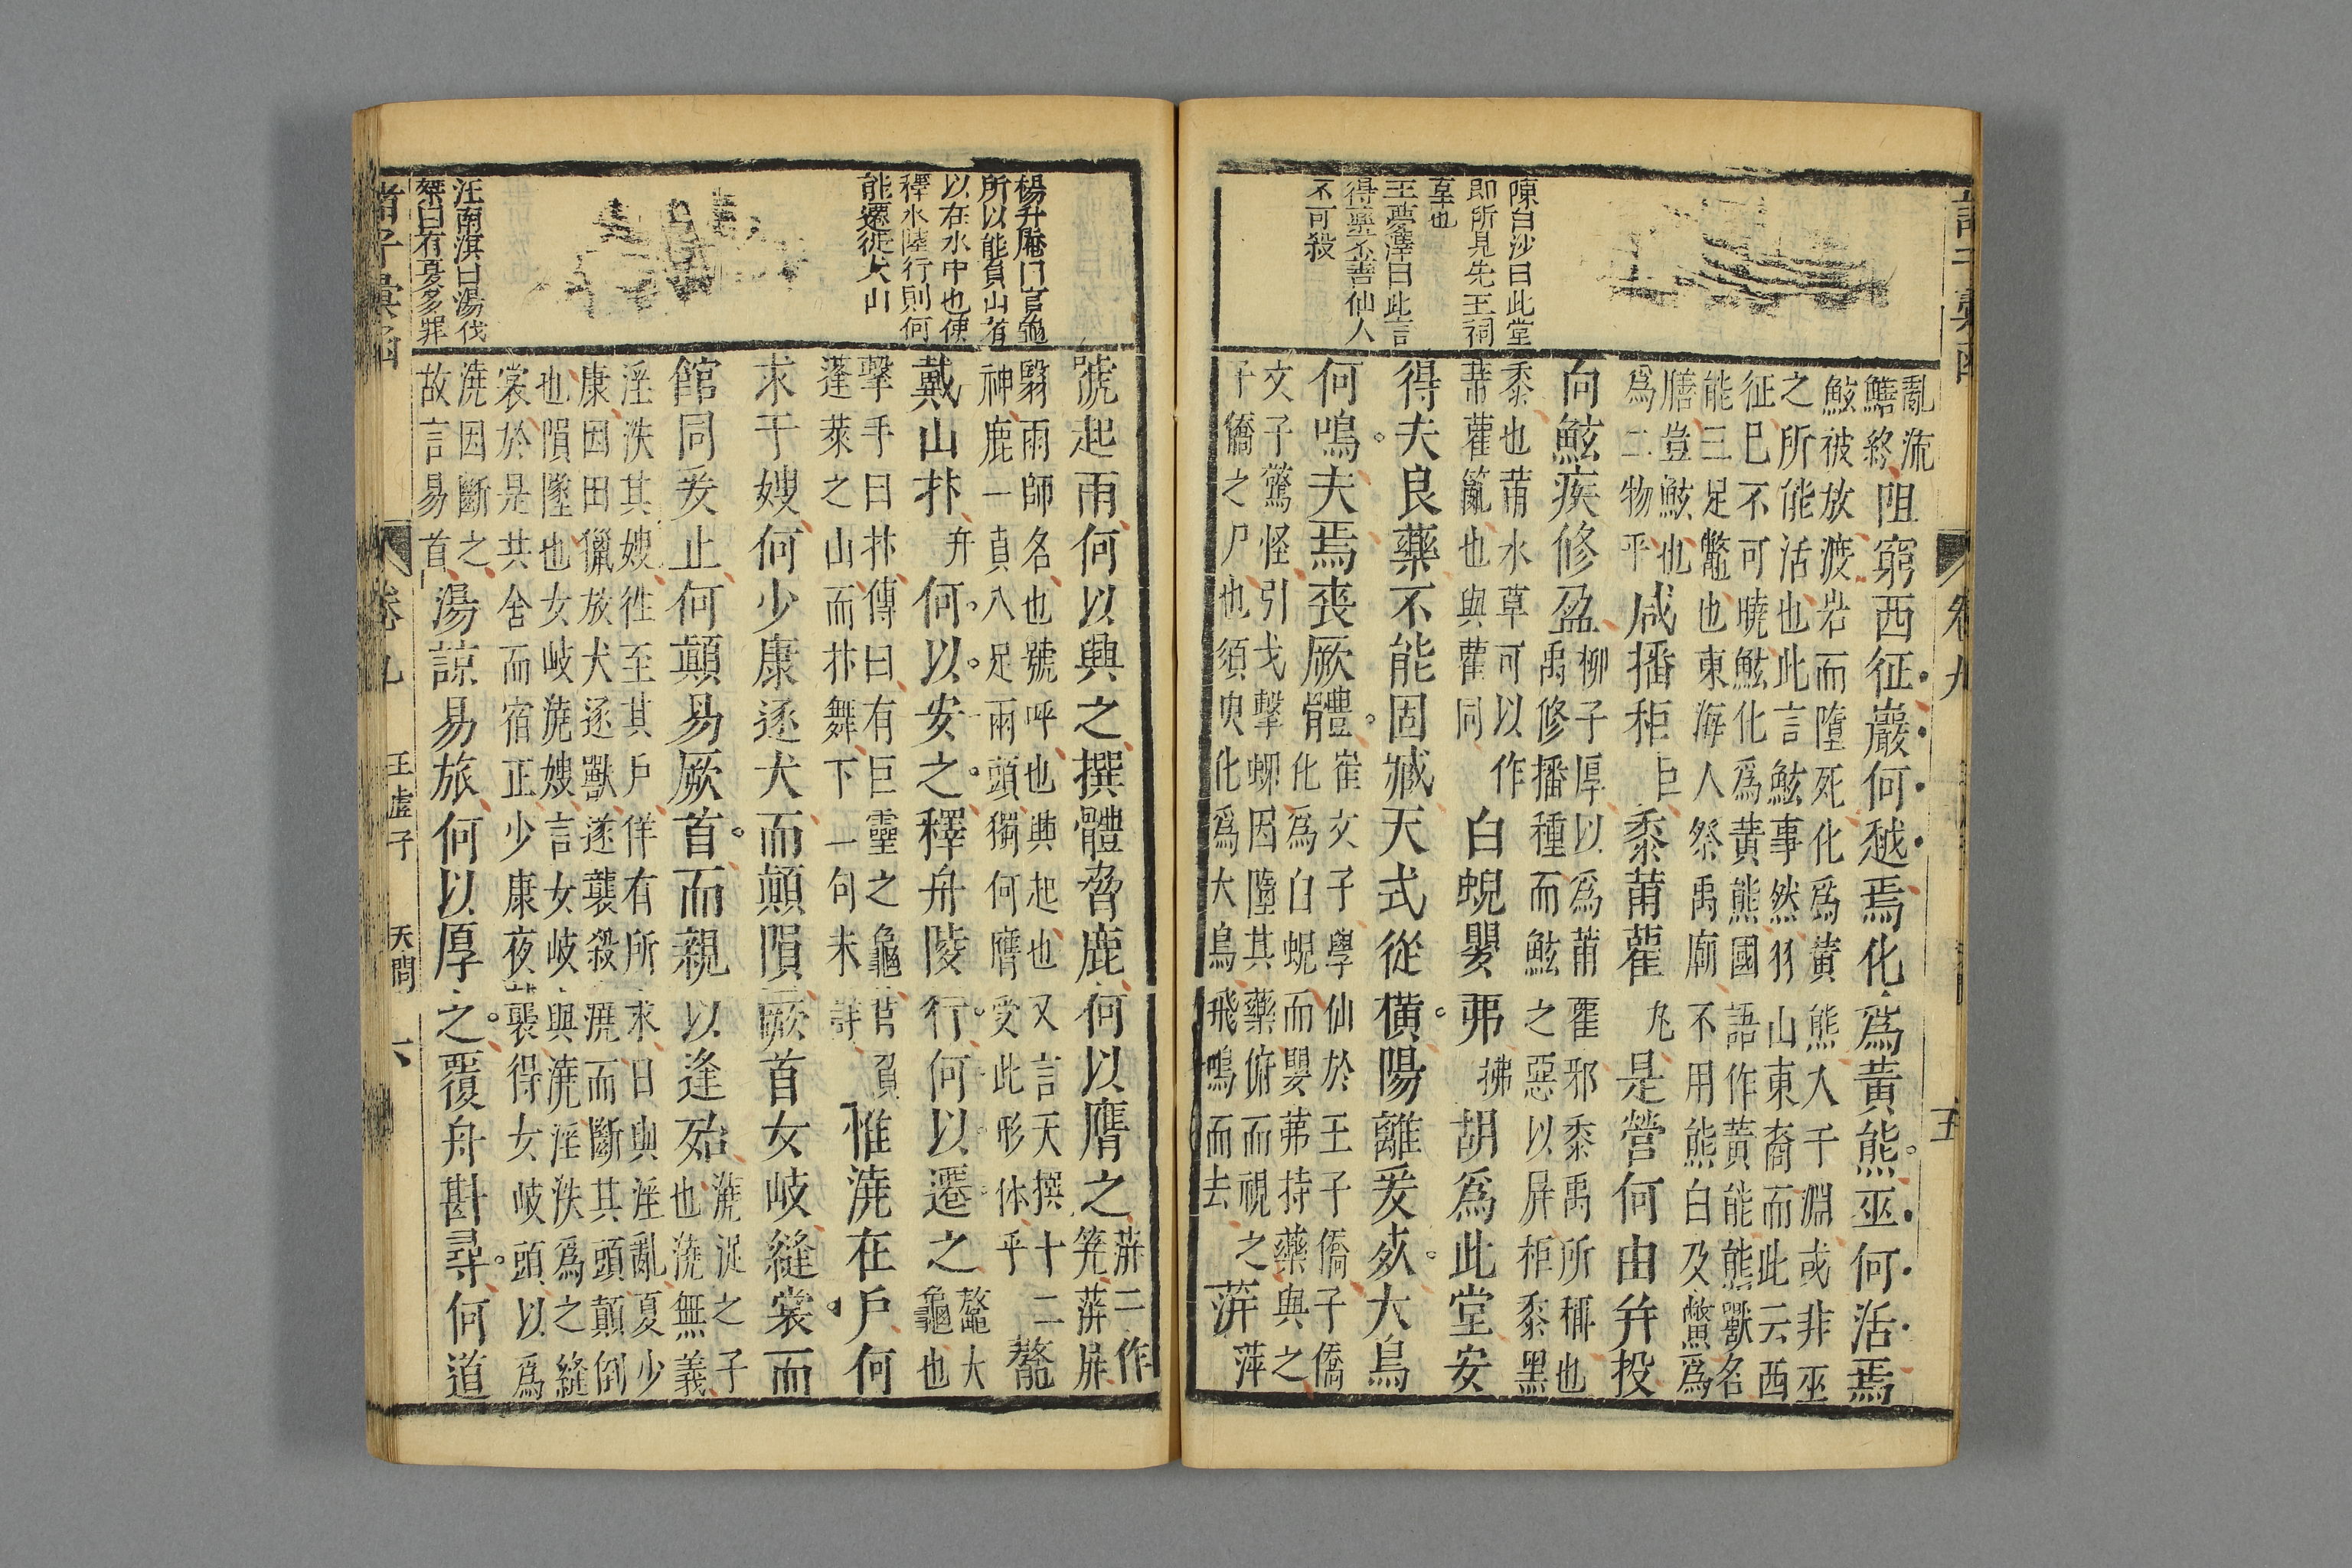 諸子彙函 卷九 五
陳白沙曰此堂
即所見先王祠
享也
王夢澤曰此言
得藥不善仙人
不可殺
亂流
鱔終
阻窮西征巖何越焉化爲黃熊巫何活焉
鮌被放渡岩而墮死化爲黃熊入于淵或非巫
之所能活也此言鮌事然羽山東裔而此云西
征已不可曉鮌化爲黃熊國語作黃能熊獸名
能三足鼈也東海人祭禹廟不用熊白及鱉爲
膳豈鮌也
爲二物乎
咸播秬巨黍莆雚丸是營何由并投
何鮌疾修盈
柳子厚以爲莆雚邪黍禹所稱也
禹修播種而鮌之惡以屏秬黍黑
黍也莆水草可以作
萆雚簏也與雚同
白蜺嬰茀拂胡爲此堂安
得夫良藥不能固臧天式從橫陽離爰死大鳥
何鳴夫焉喪厥體
崔文子學仙於王子僑子僑
化爲白蜺而嬰茀持藥與之
文子驚怪引戈擊蜺因墮其藥俯而視之
子僑之尸也須臾化爲大鳥飛鳴而去
蓱萍
楊升庵曰官龜
所以能負山者
以在水中也使
釋水陸行則何
能遷徙大山
汪南淇曰湯伐
桀曰有夏多罪
號起雨何以興之撰體脅鹿何以膺之
蓱二作
蓱屏
翳雨師名也號呼也興起也又言天撰十二
神鹿一身八足兩頭獨何膺受此形体乎
鰲
戴山抃弁何以安之釋舟陵行何以遷之
鰲大
龜也
擊手曰抃傳曰有巨靈之龜背負
蓬萊之山而抃舞下一句未詳
惟澆在戶何
求于嫂何少康逐犬而顛隕厥首女岐縫裳而
館同爰止何顛易厥首而親以逢殆
澆浞之子
也澆無義
淫泆其嫂往至其戶佯有所求曰與淫亂夏少
康因田獵放犬逐獸遂襲殺澆而斷其頭顛倒
也隕墜也女岐澆嫂言女岐與澆淫泆爲之縫
裳於是共舍而宿正少康夜襲得女岐頭以爲
澆因斷之
故言易首
湯諒易旅何以厚之覆舟斟尋何道
諸子彙函 卷九 王虛子 天問 六